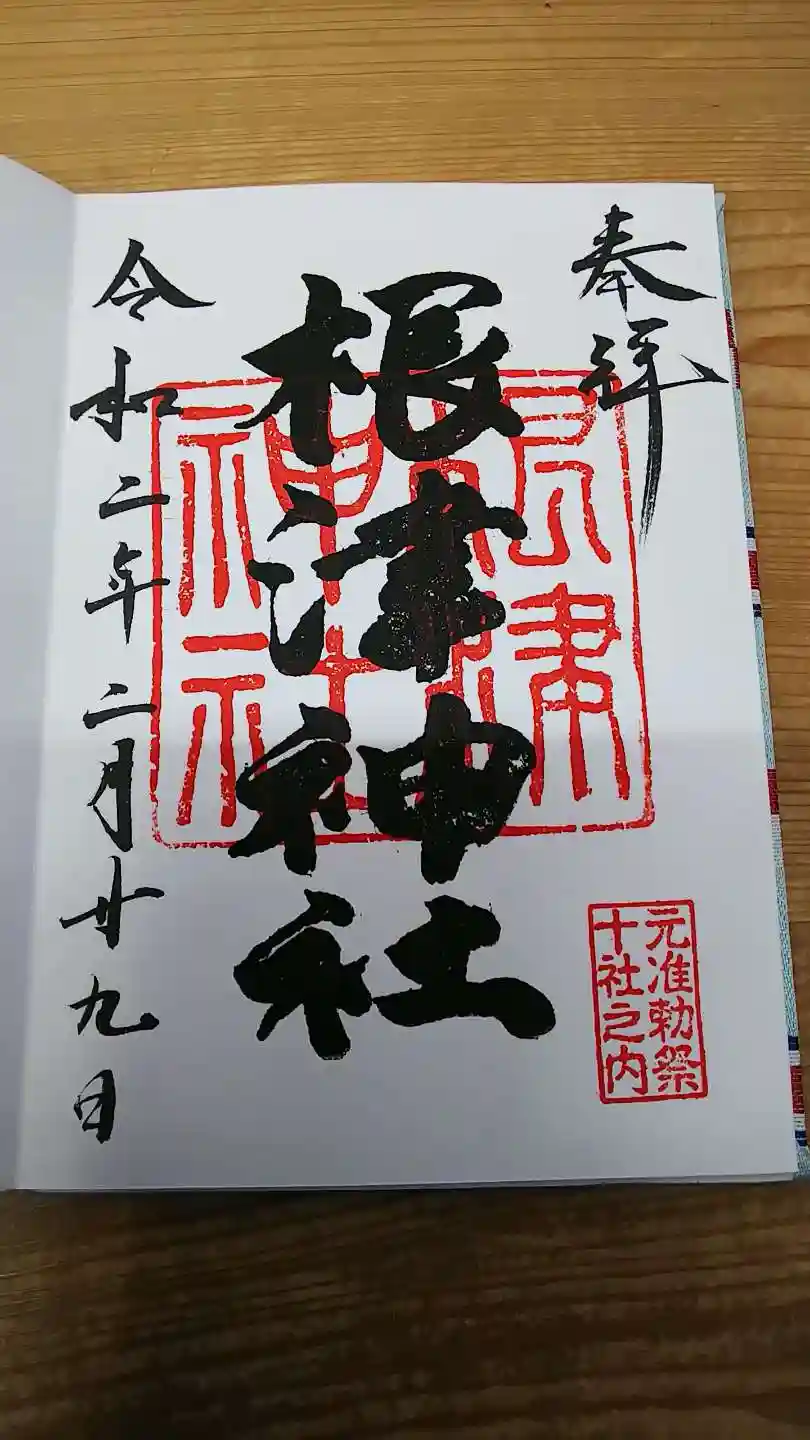 奉拝
元准勅祭
十社之内
根津神社
根津神社
令和二年二月廿九日